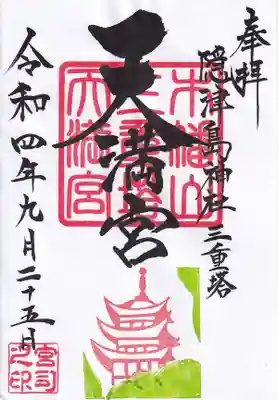 奉拝
隠津島神社 三重塔
天満宮
木幡山
天満宮
令和四年九月二十五日
宮司之印